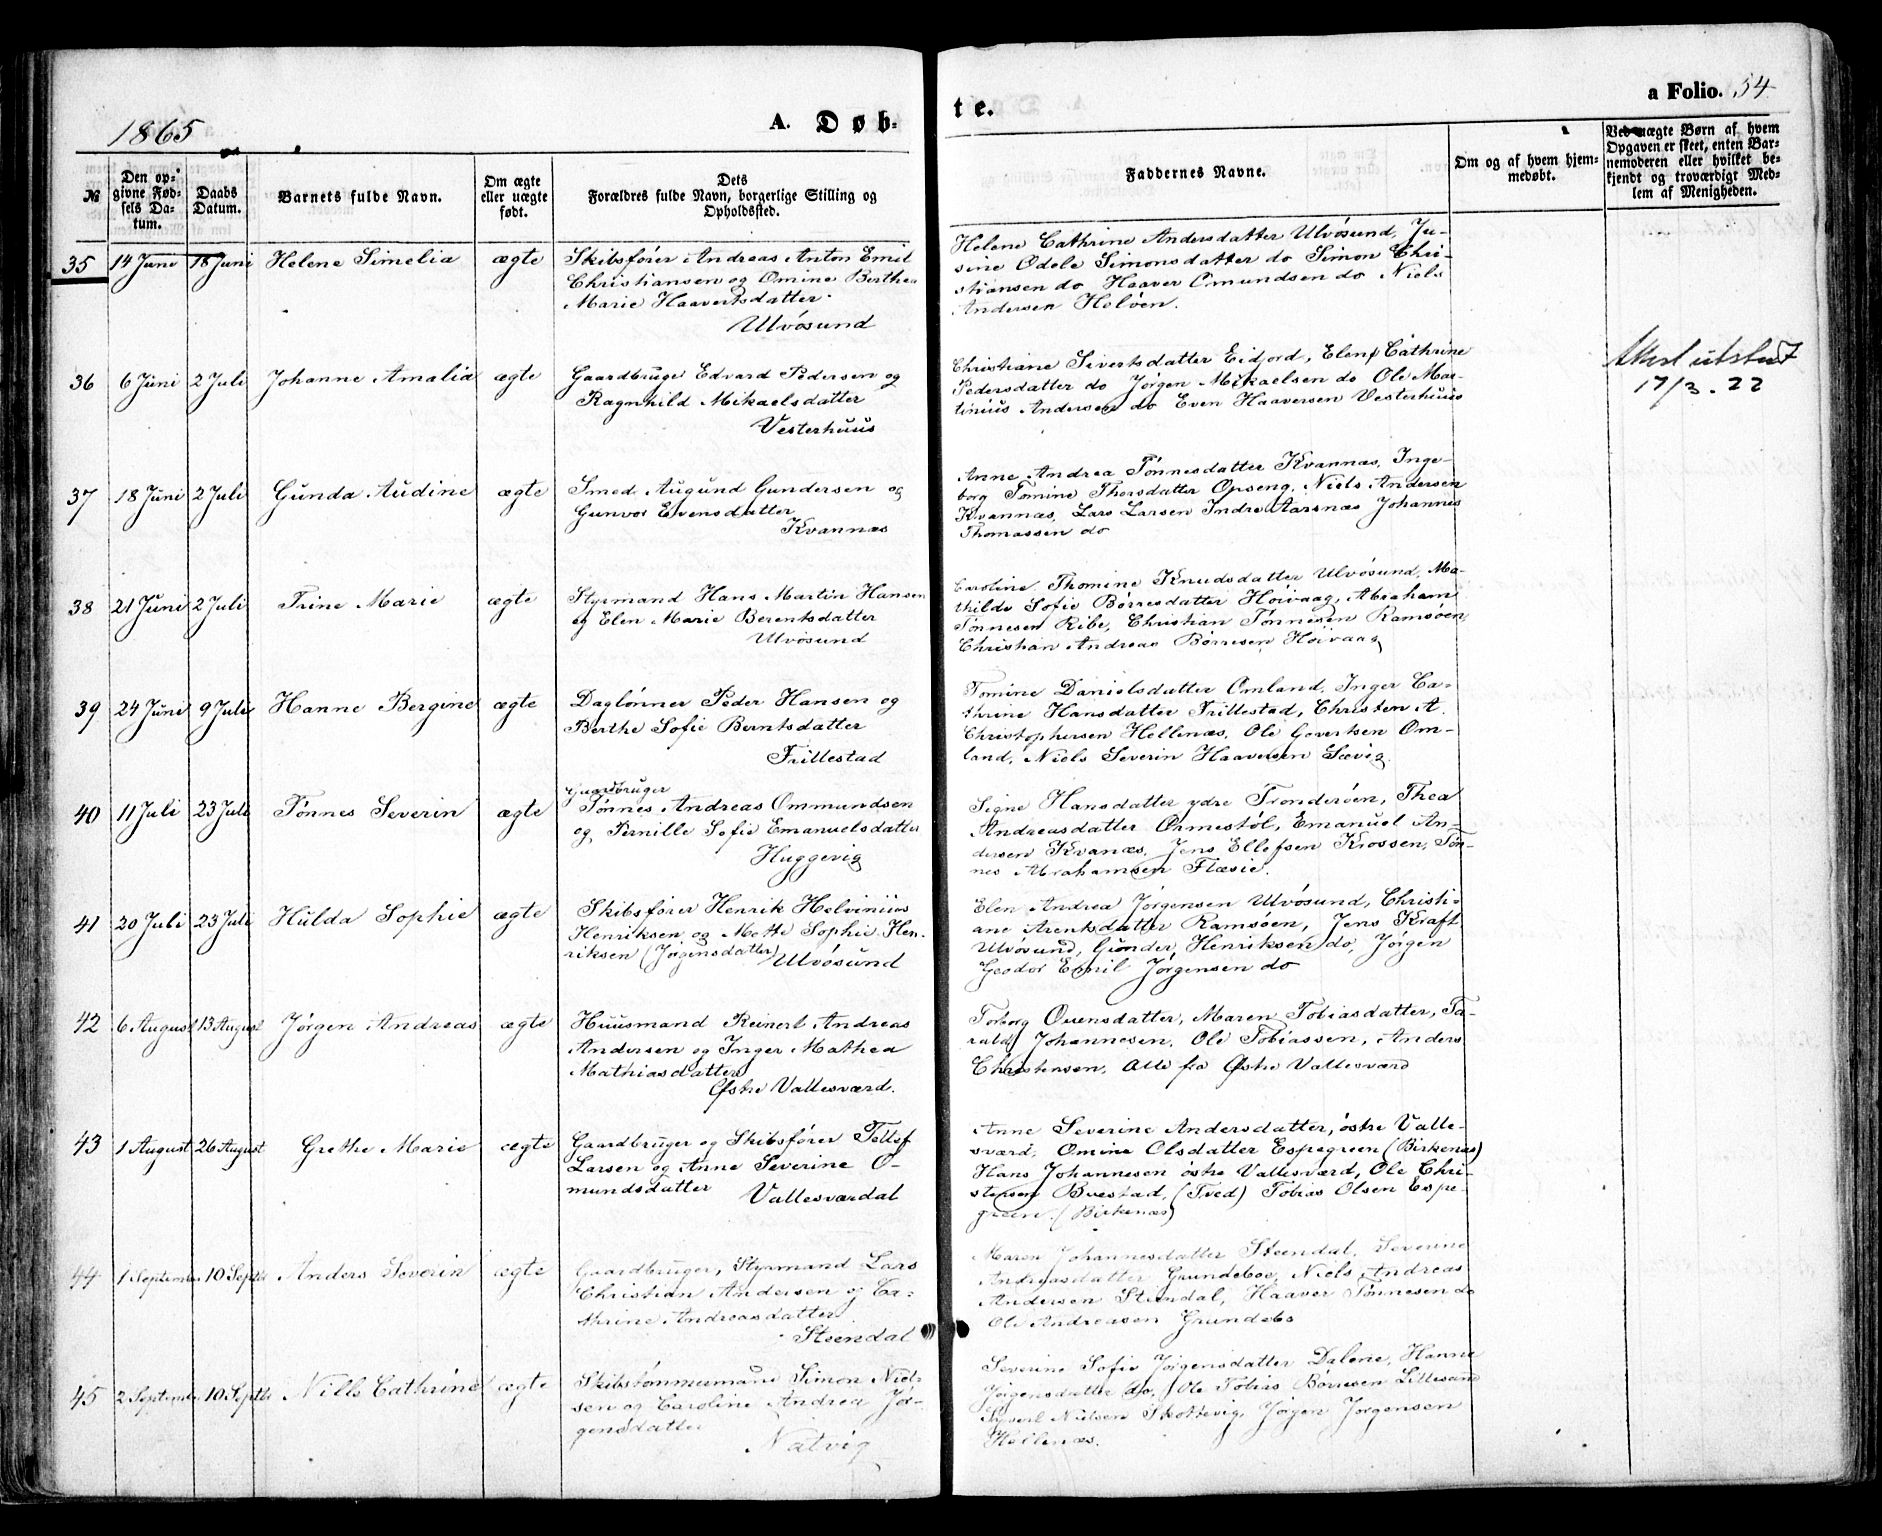 1865
A. Døb-
te.
a Folio. 54
№
Den op-
givne Fød-
sels Da-
tum.
Daabs
Datum.
Barnets fulde Navn.
Om ægte
eller uægte
født.
Dets
Forældres fulde Navn, borgerlige Stilling og
Opholdssted.
Faddernes Navne.
Om og af hvem hjem-
medøbt.
Ved uægte Børn af hvem
Opgaven er skeet, enten Bar-
nemoderen eller hvilket be-
kjendt og troværdigt Med-
lem af Menigheden.
35 14 Juni 18 Juni Helene Simelia ægte
Skibsfører Andreas Anton Emil
Christiansen og Omine Berthea
Marie Haavertsdatter
Ulvøsund
Helene Cathrine Andersdatter Ulvøsund, Ju-
sine Odele Simonsdatter do Simon Chri-
stiansen do Haaver Omundsen do Niels
Andersen Holøen.
36 6 Juni 2 Juli Johanne Amalia ægte
Gaardbruger Edvard Pedersen og
Ragnhild Mikaelsdatter
Vesterhuus
Christiane Sivertsdatter Eidjord, Elen Cathrine
Pedersdatter do Jørgen Mikaelsen do Ole Mar-
tinius Andersen do Even Haaversen Vesterhuus
Attest utstedt
17/3. 22
37 18 Juni 2 Juli Gunda Audine ægte
Smed Augund Gundersen og
Gunvor Evensdatter
Kvannes
Anne Andrea Tønnesdatter Kvannæs, Inge-
borg Tomine Thorsdatter Opseng, Niels Andersen
Kvannæs, Lars Larsen Indre Aarsnæs Johannes
Thomassen do
38 21 Juni 2 Juli Trine Marie ægte
Styrmand Hans Martin Hansen
og Elen Marie Berentsdatter
Ulvøsund
Caroline Thomine Knudsdatter Ulvøsund, Ma-
thilde Sofie Børresdatter Høivaag, Abraham
Tønnesen Ribe, Christian Tønnesen Ramsøen,
Christian Andreas Børresen Høivaag
39 24 Juni 9 Juli Hanne Bergine ægte
Daglønner Peder Hansen og
Berthe Sofie Berntsdatter
Trillestad
Tomine Danielsdatter Omland, Inger Ca-
thrine Hansdatter Trillestad, Christen A.
Christophersen Hellenæs, Ole Govertsen Om-
land, Niels Severin Haaversen Sævig
40 11 Juli 23 Juli Tønnes Severin ægte
Gaardbruger
Tønnes Andreas Ommundsen
og Pernille Sofie Emanuelsdatter
Huggevig
Signe Hansdatter ydre Tronderøen, Thea
Andreasdatter Ormestøl, Emanuel An-
dersen Kvanæs, Jens Ellefsen Krossen, Tøn-
nes Abrahamsen Flæsie.
41 20 Juli 23 Juli Hulda Sophie ægte
Skibsfører Henrik Helvinius
Henriksen og Mette Sophie Hen-
riksen (Jørgensdatter)
Ulvøsund
Elen Andrea Jørgensen Ulvøsund, Christi-
ane Arentsdatter Ramsøen, Jens Kraft
Ulvøsund, Gunder Henriksen do, Jørgen
Geodor Emil Jørgensen do
42 6 August 13 August Jørgen Andreas ægte
Huusmand Reinert Andreas
Andersen og Inger Mathea
Mathiasdatter
Østre Vallesværd.
Torborg Ouensdatter, Maren Tobiasdatter, Ta-
rald Johannesen, Ole Tobiassen, Anders
Christensen, Alle fra Østre Vallesværd
43 1 August 26 August Grethe Marie ægte
Gaardbruger og Skibsfører Tellef
Larsen og Anne Severine O-
mundsdatter
Vallesværdal
Anne Severine Andersdatter, østre Valle-
sværd, Omine Olsdatter Espegreen (Birkenæs)
Hans Johannesen østre Vallesværd, Ole Chri-
stensen Buestad, (Tved) Tobias Olsen Espe-
green. (Birkenæs)
44 1 September 10 Septbr Anders Severin ægte
Gaardbruger, Styrmand Lars
Christian Andersen og Ca-
thrine Andreasdatter
Steendal
Maren Johannesdatter Steendal, Severine
Andreasdatter Grundeboe, Niels Andreas
Andersen Steendal, Haaver Tønnesen do
Ole Andreasen Grundebo
45 2 September 10 Septbr Nille Cathrine ægte
Skibstømmermand Simon Niel-
sen og Caroline Andrea Jør-
gensdatter
Natvig
Severine Sofie Jørgensdatter Dalene, Hanne
Jørgensdatter do, Ole Tobias Børresen Lillesand
Syvert Nielsen Skottevig, Jørgen Jorgensen
Hellenæs.